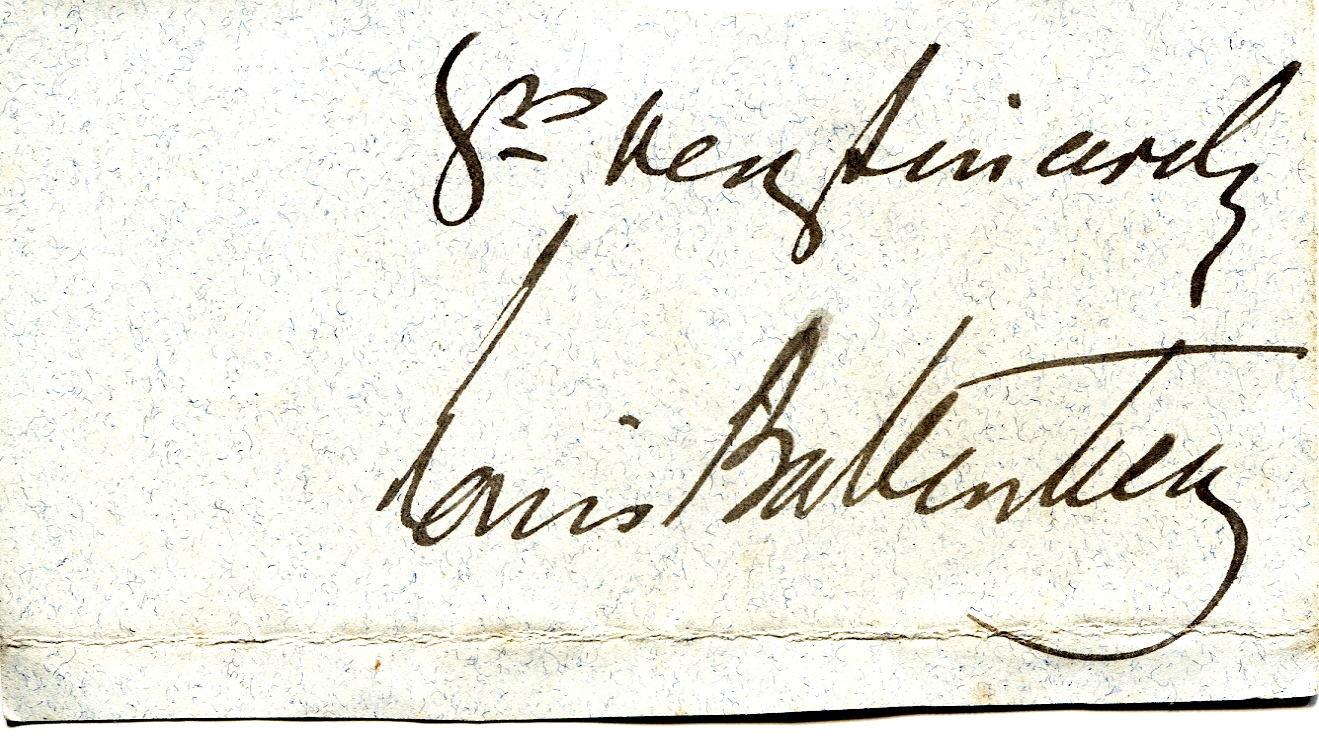 Yrs very sincerely
Louis Battenberg